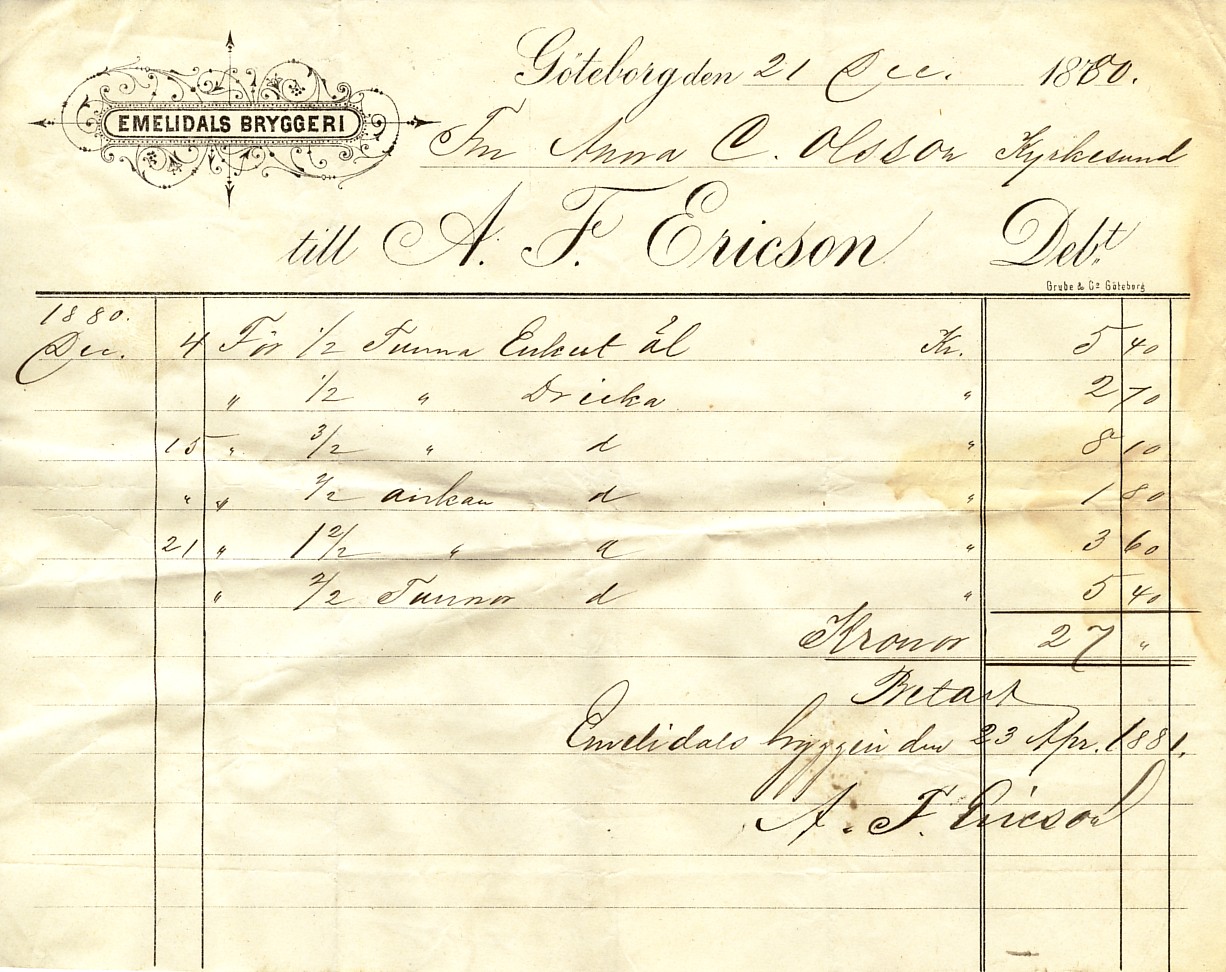 Göteborg den 21 Dec. 1880.
EMELIDALS BRYGGERI
Fru Anna C. Olsson Kyrkesund
till A. F. Ericson Debt.
Grube & Co Göteborg
1880.
Dec. 4 För 1/2 Tunna Enkelt öl Kr. 5 40
" 1/2 " Dricka " 2 70
15 " 3/2 " d " 8 10
" " 2/2 ankare d " 1 80
21 " 1 2/2 " d " 3 60
" 2/2 Tunnor d " 5 40
Kronor 27 "
Betalt
Emelidals bryggeri den 23 Apr. 1881.
A. F. Ericson